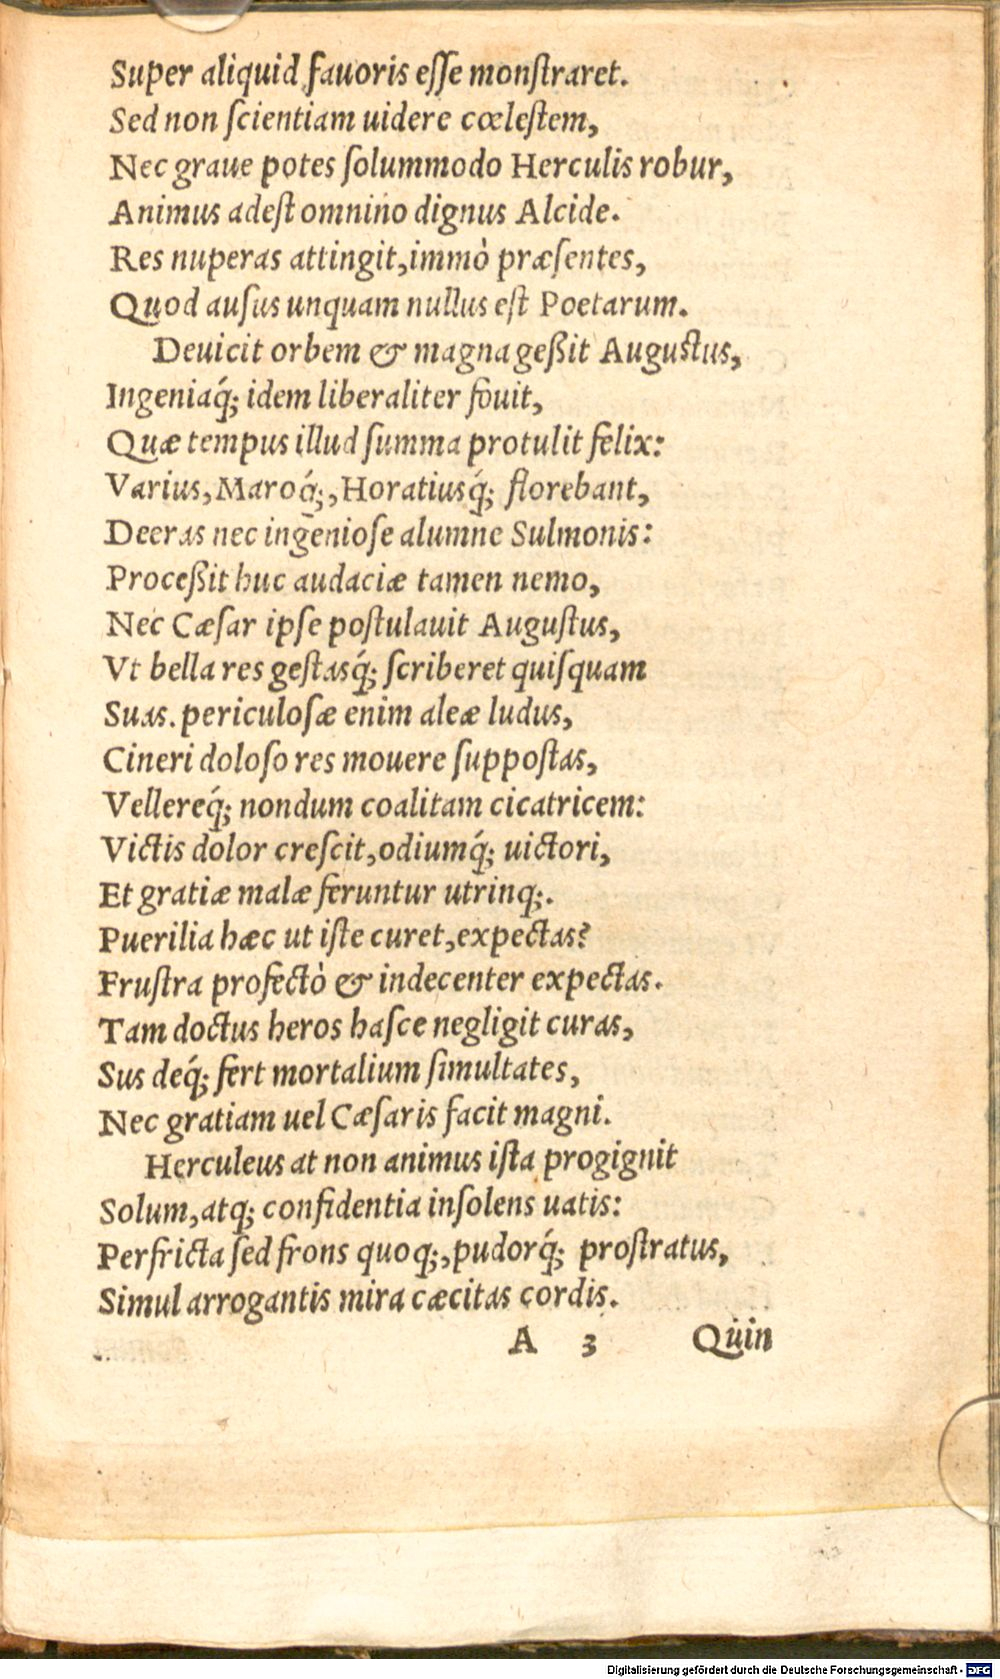 Super aliquid fauoris eſſe monſtraret.
Sed non ſcientiam uidere cœleſtem,
Nec graue potes ſolummodo Herculis robur,
Animus adeſt omnino dignus Alcide.
Res nuperas attingit, immò præſentes,
Quod auſus unquam nullus eſt Poetarum.
Deuicit orbem & magna geßit Auguſtus,
Ingeniaq́; idem liberaliter fouit,
Quæ tempus illud ſumma protulit felix:
Varius, Maroq́;, Horatiusq́; florebant,
Deeras nec ingenioſe alumne Sulmonis:
Proceßit huc audaciæ tamen nemo,
Nec Cæſar ipſe poſtulauit Auguſtus,
Vt bella res geſtasq́; ſcriberet quiſquam
Suas. periculoſæ enim aleæ ludus,
Cineri doloſo res mouere ſuppoſtas,
Vellereq́; nondum coalitam cicatricem:
Victis dolor creſcit, odiumq́; uictori,
Et gratiæ malæ feruntur utrinq;.
Puerilia hæc ut iſte curet, expectas?
Fruſtra profectò & indecenter expectas.
Tam doctus heros haſce negligit curas,
Sus deq́; fert mortalium ſimultates,
Nec gratiam uel Cæſaris facit magni.
Herculeus at non animus iſta progignit
Solum, atq; confidentia inſolens uatis:
Perfricta ſed frons quoq;, pudorq́; proſtratus,
Simul arrogantis mira cæcitas cordis.
A 3 Quin
Digitalisierung gefördert durch die Deutsche Forschungsgemeinschaft - DFG